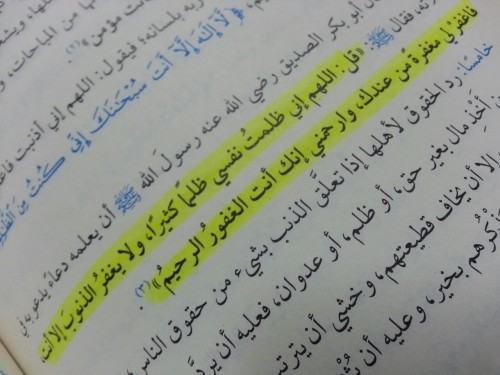 من المباحات، و
ت مؤمن»(٢).
بلسانه؛ فيقول: اللهم إني أذنبت
﴿لَا إِلَٰهَ إِلَّا أَنتَ سُبْحَٰنَكَ إِنِّي كُنتُ مِنَ
أبو بكر الصديق رضي الله عنه رسولَ الله ﷺ أن يعلمه دعاءً يدعو به في
فقال ﷺ: «قل: اللهم إني ظلمتُ نفسي ظلمًا كثيرًا، ولا يغفرُ الذنوبَ إلا أنت،
فاغفر لي مغفرةً من عندك، وارحمني إنك أنت الغفورُ الرحيمُ»(٣).
خامسًا: رد الحقوق لأهلها إذا تعلَّق الذنب بشيء من حقوق الناس،
أَخْذِ مال بغير حق، أو ظلم، أو عدوان، فعليه أن يردَّ
إلا أن يخاف قطيعتهم، وخشي أن
بخير، وعليه أن